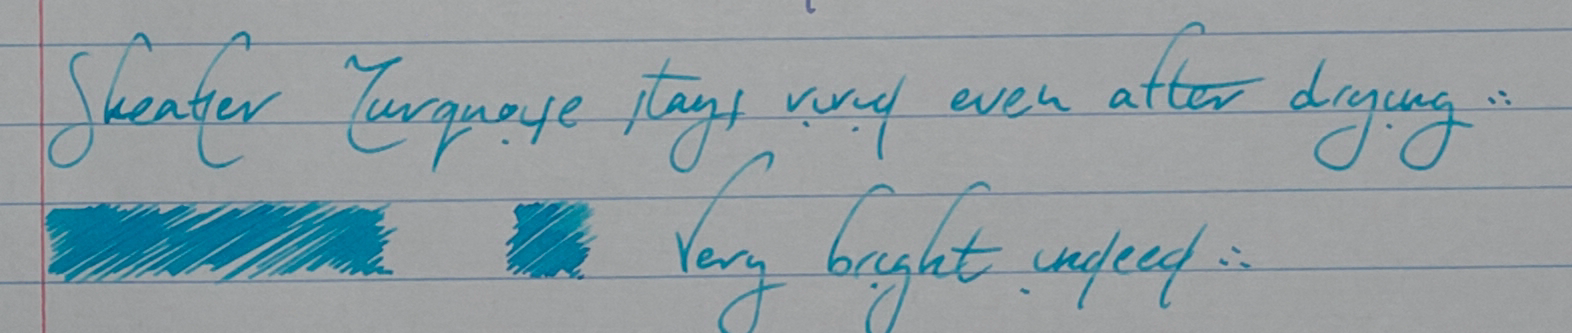 Sheaffer Turquoise stays vivid even after drying ∴
Very bright indeed ∴